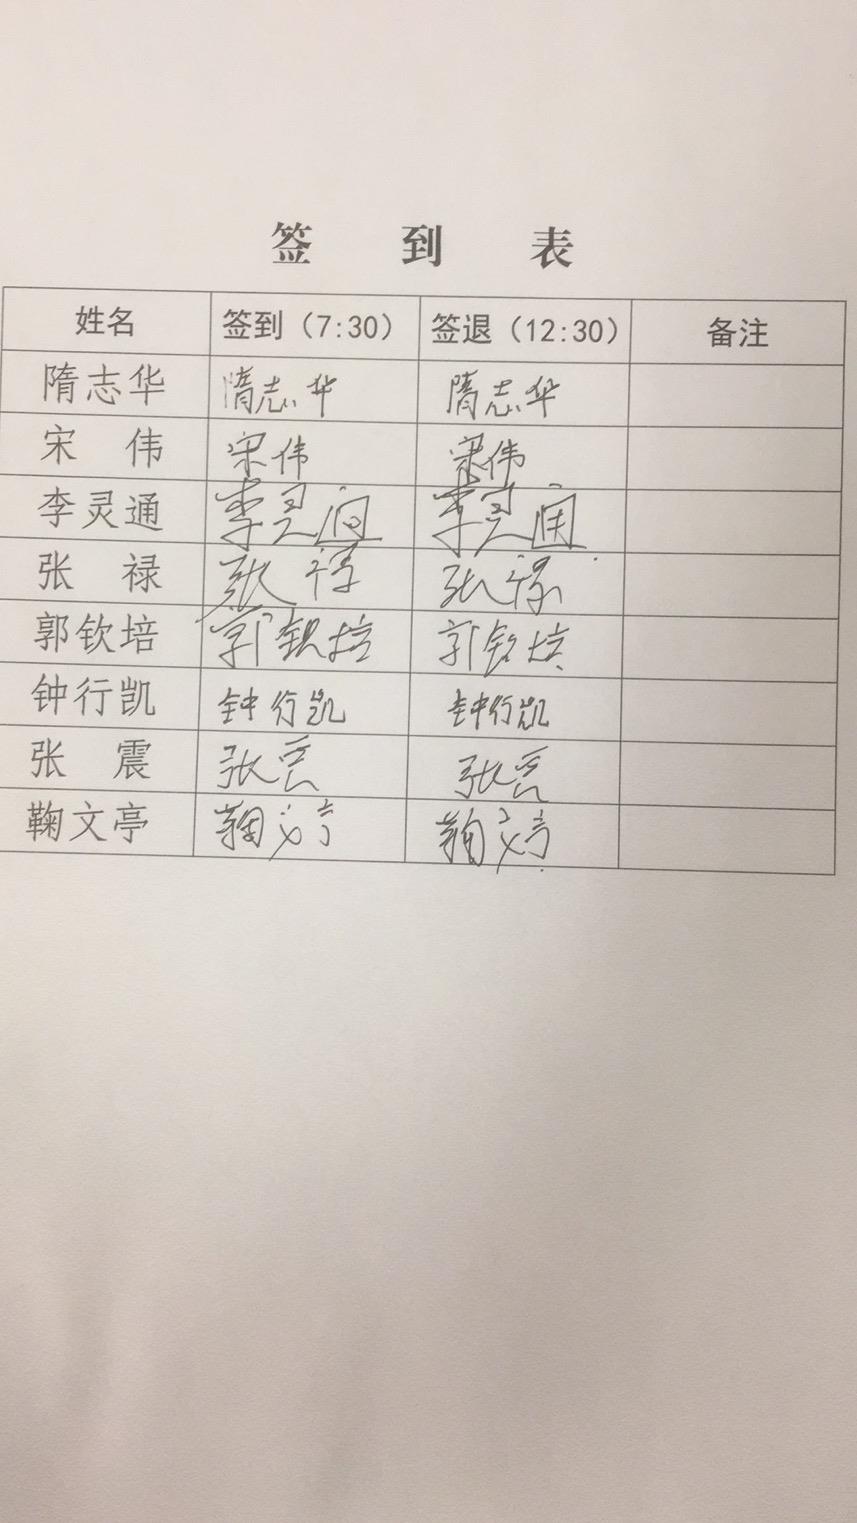 签 到 表
姓名 签到（7:30） 签退（12:30） 备注
隋志华 隋志华 隋志华
宋 伟 宋伟 宋伟
李灵通 李灵通 李灵通
张 禄 张禄 张禄
郭钦培 郭钦培 郭钦培
钟行凯 钟行凯 钟行凯
张 震 张震 张震
鞠文亭 鞠文亭 鞠文亭